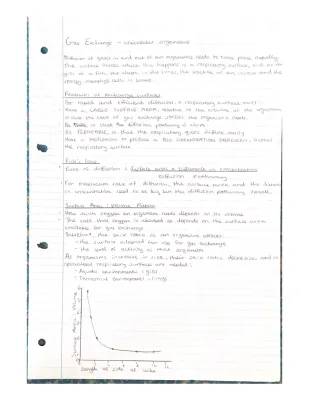 Gas Exchange - unicellular organisms
Diffusion of gases in and out of an organism needs to take place rapidly.
The surface across which this happens is a respiratory surface, such as the
gills of a fish, the alveoli in the lungs, the of an and the
spongy mesophyll cells in leaves.
Features of exchange surfaces
For rapid and efficient diffusion, a respiratory surface must:
Have a LARGE SURFACE AREA, relative to the volume of the organism
so that the rate of gas exchange satisfies the organism's needs.
Be THIN, so that the diffusion pathway is short.
Be PERMEABLE so that the respiratory gases diffuse easily
Have a mechanism to produce a DIFFUSION GRADIENT, across
the respiratory surface.
Fick's Law
Rate of diffusion ∝ Surface area x Difference in concentration
Diffusion Pathway
For maximum rate of diffusion, the surface area and the difference
in concentration need to be big but the diffusion pathway small.
Surface Area : Volume Ratio
How much oxygen an organism needs depends on its volume
The rate that oxygen is absorbed at depends on the surface area
available for gas exchange
Therefore, the SA:V ratio of an organism affects:
- the surface area it can use for gas exchange
- the level of activity in that organism
As organisms increase in size, their SA:V ratio decreases and so
specialised respiratory surfaces are needed:
- Aquatic environments: gills
- Terrestrial environments: lungs
Surface Area : Volume
Length of side of cube